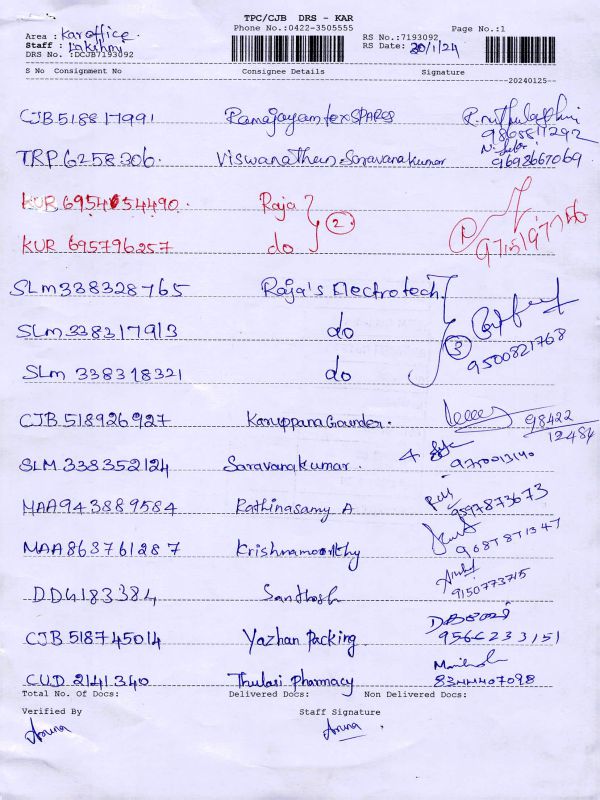 TPC/CJB DRS - KAR
Phone No.:0422-3505555
Page No.:1
Area : Kar office
RS No.:7193092
Staff : Lakshmi
RS Date: 20/1/24
DRS No. :DCJB7193092
S No Consignment No Consignee Details Signature
20240125
CJB 518817991 Ramajayam tex SPARES
9865817292
TRP 6258306. Viswanathan. Saravanakumar 9692667069
KUR 6954654490. Raja 2
KUR 695796257 do 9715197756
SLM 338328765 Raja's Electrotech.
SLM 338317913 do 3
9500821768
SLM 338318321 do
CJB 518926927 KaruppanaGounder. 98422
12484
SLM 338352124 Saravanakumar. 9750013140
MAA943889584 Rathinasamy A 9597873673
MAA863761287 Krishnamoorthy 9687871347
DDG183384 Santhosh 9150773715
CJB 518745014 Yazhan Packing. 9566233151
CUD 2141340 Thulasi Pharmacy 8344407098
Total No. Of Docs: Delivered Docs: Non Delivered Docs:
Verified By Staff Signature
Aruna Aruna